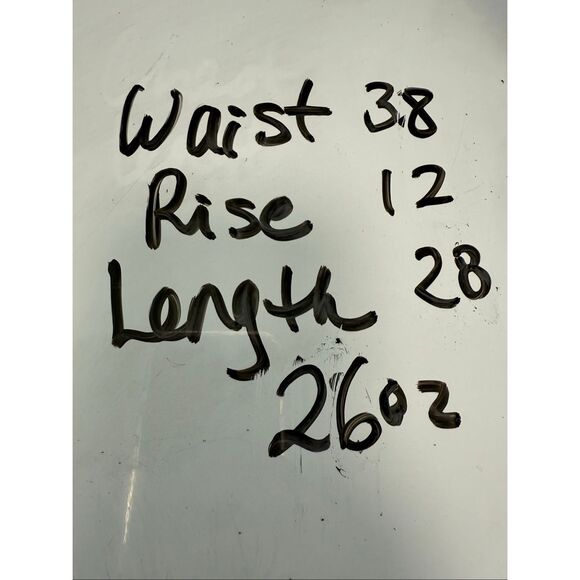 Waist 38
Rise 12
Length 28
26oz